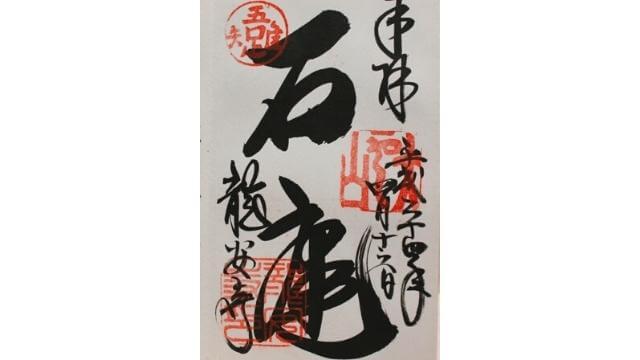 奉拝
平成二十四年
四月十六日
石庭
龍安寺
吾唯足知